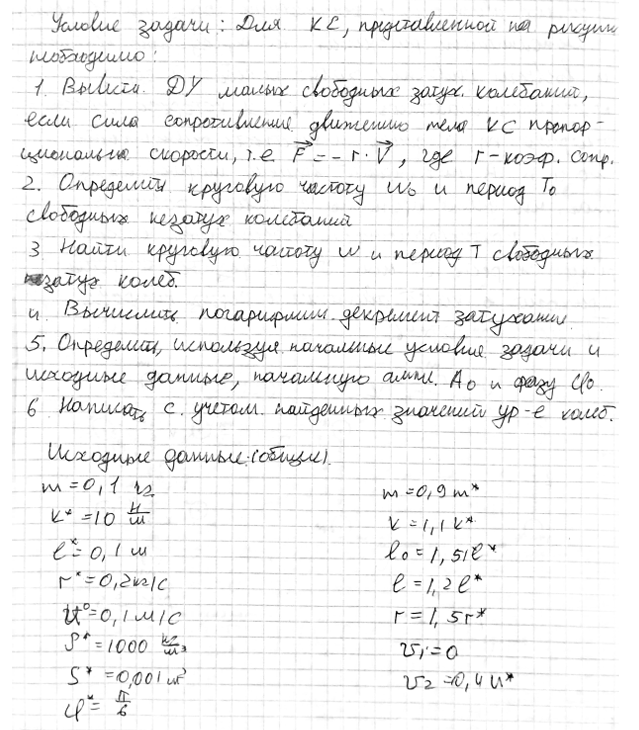 Условие задачи: Для КС, представленной на рисунк
необходимо:
1. Вывести ДУ малых свободных затух. колебаний,
если сила сопротивления движению тела КС пропор-
циональна скорости, т.е F⃗ = -r·V⃗, где r-коэф. сопр.
2. Определить круговую частоту ω₀ и период T₀
свободных незатух колебаний
3 Найти круговую частоту ω и период T свободных
затух колеб.
4 Вычислить логарифмич. декремент затухания.
5. Определить, используя начальные условия задачи и
исходные данные, начальную ампл. A₀ и фазу φ₀.
6 Написать с учетом найденных значений ур-е колеб.
Исходные данные: (общие).
m = 0,1 кг
k* = 10 Н/м
ℓ* = 0,1 м
r* = 0,2 кг/с
= 0,1 м/с
ρ* = 1000 кг/м³
S* = 0,001 м²
φ* = π/6
m = 0,9 m*
k = 1,1 k*
ℓ₀ = 1,51ℓ*
ℓ = 1,2 ℓ*
r = 1,5 r*
υ₁ = 0
υ₂ = 0,4 u*